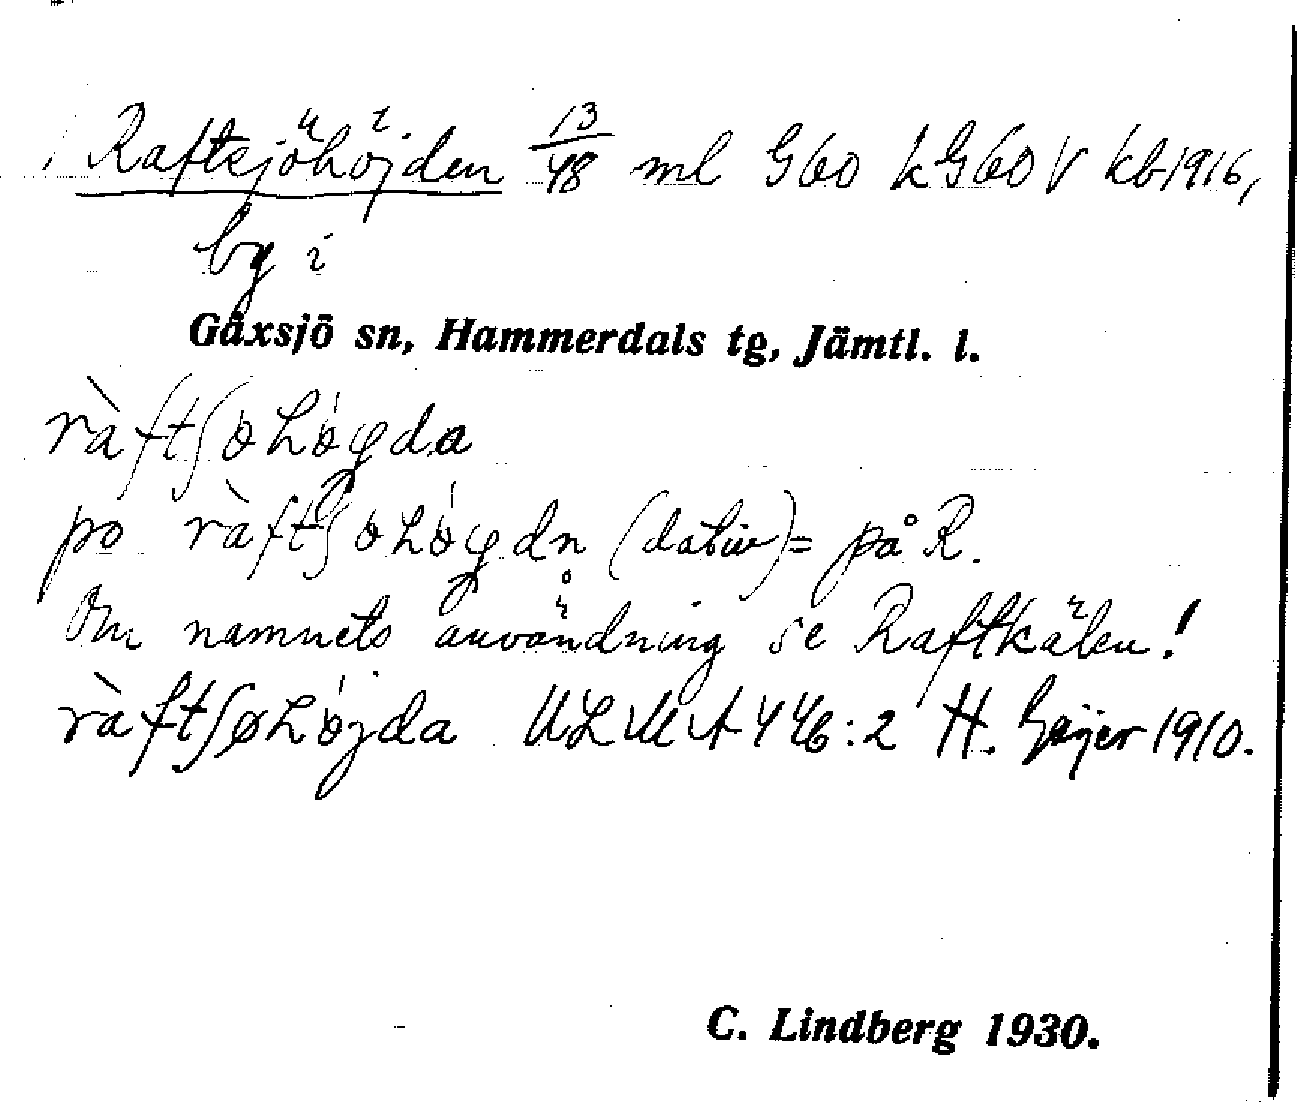 Raftsjöhöjden 13/48 ml G60 kG60V kb1916,
by i
Gåxsjö sn, Hammerdals tg, Jämtl. l.
ràftʃɵhɵ́ɟda
po ràftʃɵhɵ́ɟdn̥ (dativ) = på R.
Om namnets användning se Raftkälen!
ràftʃøhɵ́jda ULMA 446:2 H. Geijer 1910.
C. Lindberg 1930.